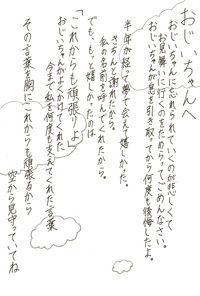 おじぃちゃんへ
おじいちゃんに忘れられていくのが悲しくて
お見舞いに行くのをためらってごめんなさい。
おじいちゃんが息を引き取ってから何度も後悔したよ。
半年が経って夢で会えて嬉しかった。
きちんと謝れたから。
私の名前を呼んでくれたから。
でも、もっと嬉しかったのは
「これからも頑張りよ」
おじいちゃんがよくかけてくれた
今まで私を何度も支えてくれた言葉
その言葉を胸にこれからも頑張るから
空から見守っていてね